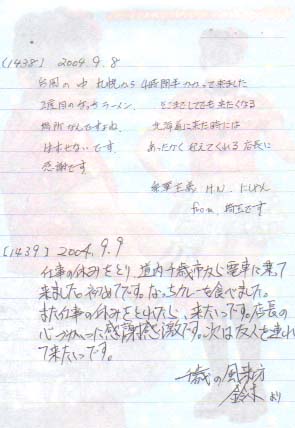 (1438) 2004.9.8
台風の中 札幌から4時間半かかって来ました
2度目のなっちラーメン。どこまでしてでも来たくなる
場所なんですよね。 北海道に来た時には
はずせないです。あったかく迎えてくれる店長に
感謝です
H.N. にしやん
from 埼玉です
(1439) 2004.9.9
仕事の休みをとり、道内千歳市から電車に乗って
来ました。初めてです。なっちカレーを食べました。
また仕事の休みをとれたら、来たいです。店長の
心づかいに感謝感激です。次は友人を連れ
て来たいです。
千歳の風来坊
鈴木より